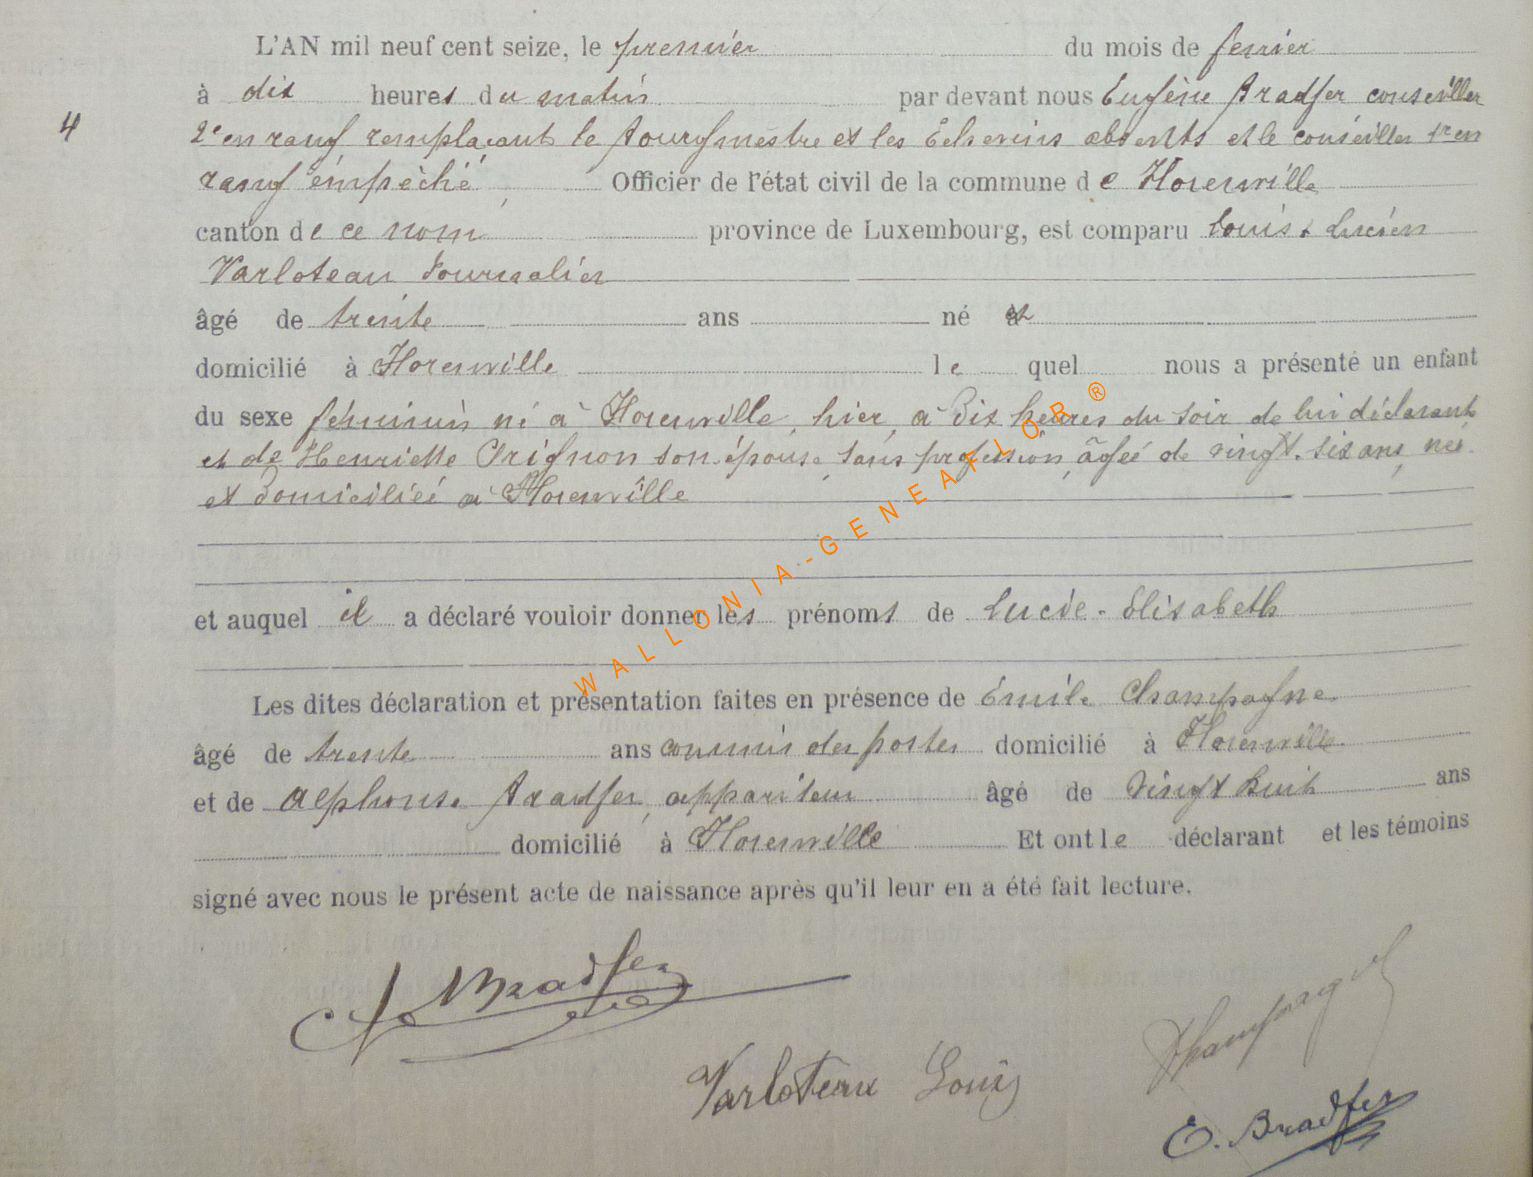 L'AN mil neuf cent seize, le premier du mois de fevrier
à dix heures du matin par devant nous Eugène Bradfer conseiller
4
2e en rang remplaçant le bourgmestre et les Echevins absents et le conseiller 1er en
rang empêché Officier de l'état civil de la commune de Florenville
canton de ce nom province de Luxembourg, est comparu Louis - Lucien
Varloteau Journalier
âgé de trente ans né et
domicilié à Florenville lequel nous a présenté un enfant
du sexe féminin né à Florenville, hier, à dix heures du soir de lui déclarant
et de Henriette Orignon son épouse, sans profession, âgée de vingt-six ans, née
et domiciliée à Florenville
et auquel il a déclaré vouloir donner les prénoms de Lucie - Elisabeth
Les dites déclaration et présentation faites en présence de Émile Champagne
âgé de trente ans commis des postes domicilié à Florenville
et de Alphonse Bradfer, appariteur âgé de vingt huit ans
domicilié à Florenville Et ont le déclarant et les témoins
signé avec nous le présent acte de naissance après qu'il leur en a été fait lecture.
A Bradfer
Champagne
Varloteau Louis
E. Bradfer
WALLONIA-GENEATLOR ®